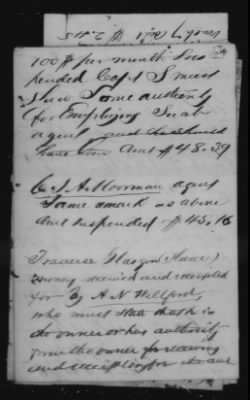 100$ per month Sus
pended Capt S must
Show Some authority
for Employing Such
agent and he should
have Amt $48.39
C. S. A. Moorman agent
Same amark as above
amt suspended $45.16
Francis Glasgow
money received and receipted
for by A N Wilford,
who must state that he is
the owner or has authority
from the owner for receiving
and receipting for